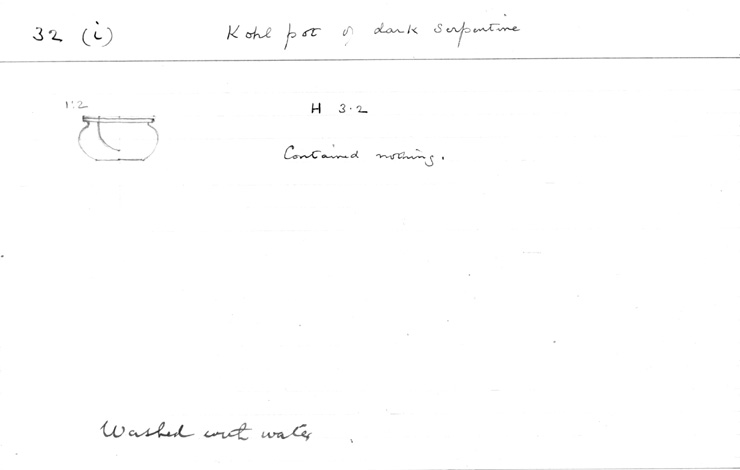 32 (i) Kohl pot of dark serpentine
1:2
H 3.2
Contained nothing.
Washed with water